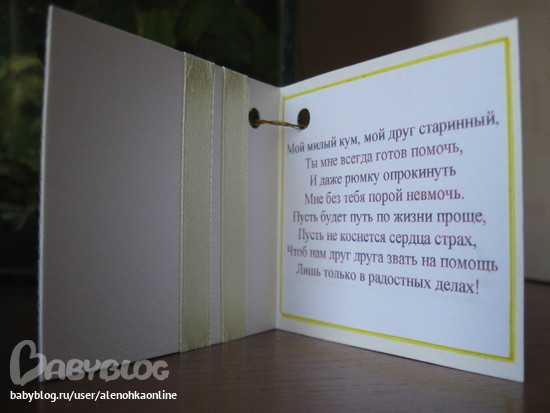 Мой милый кум, мой друг старинный,
Ты мне всегда готов помочь,
И даже рюмку опрокинуть
Мне без тебя порой невмочь.
Пусть будет путь по жизни проще,
Пусть не коснется сердца страх,
Чтоб нам друг друга звать на помощь
Лишь только в радостных делах!
BABYBLOG
babyblog.ru/user/alenohkaonline